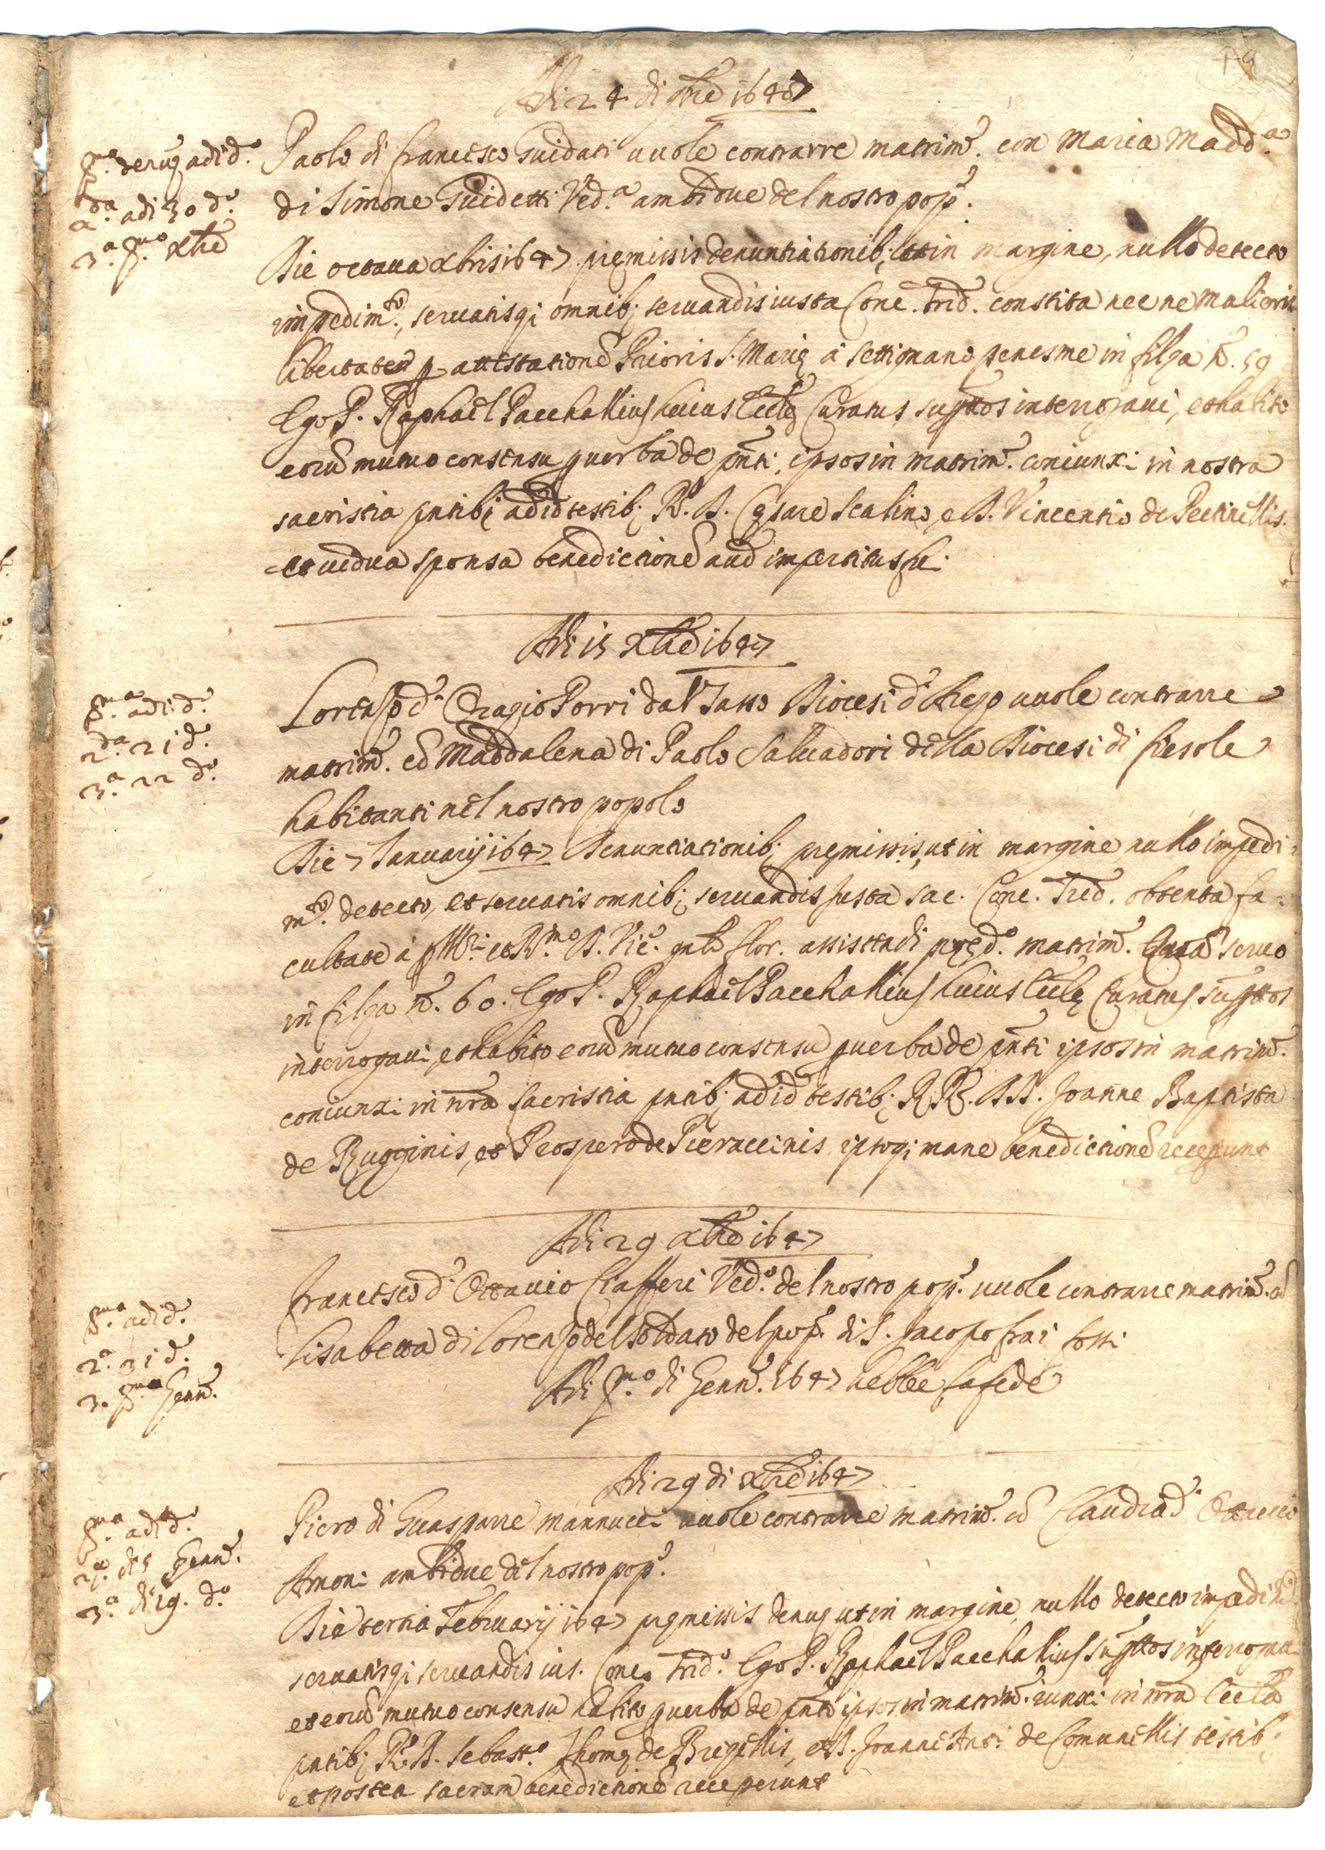 Adi 24 di 9bre 1647
Paolo di Francesco Guidati vuole contrarre matrim.º con Maria Madd.ª
di Simone Guidetti Ved.ª ambidue del nostro pop.º
p.ª denuz adi d.º
2.da adi 30 d.º
3.ª p.mo xbre
Die octava xbris 1647 premissis denuntiationib; ut in margine, nullo detecto
impedim.to, servatisq; omnib; servandis iusta Conc. Trid. constita nec ne mulieris
libertate p attestatione Prioris S. Marie a Settignano penes me in filza n.º 59
Ego P. Raphael Pacchallius huius Eccle Curatus supttos interrogavi, et habito
eoru mutuo consensu p verba de pnti, ipsos in matrim.º coniunxi in nostra
sacristia pntib; ad id testib; R.º D. Cesare Scalino, e D. Vincentio de Pectinellis.
et vidua sponsa benedictione haud impertitus fu.
Adi 15 xbre 1647
Lorenzo d. Oragio Porri dal Sasso Diocesi d. vuole contrarre
matrim.º co Maddalena di Paolo Salvadori della Diocesi di fiesole
habitanti nel nostro popolo
p.ma adi d.º
2.da 21 d.º
3.ª 22 d.º
Die 7 Januarij 1647 Denuntiationib; premissis, ut in margine nullo impedi-
m.to detecto, et servatis omnib; servandis Justa sac. Conc. Trid. obtenta fa-
cultate a Ill.ri et R.mo D. Vic.º gnle flor. assistendi pred.º matrim.º Qua servo
in filza n.º 60. Ego P. Raphael Pacchallius huius Eccle Curatus supttos
interrogavi, et habito eoru mutuo consensu p verba de pnti ipsos in matrim.º
coniunxi in nra Sacristia pntib; ad id testib; R.R. D.D. Joanne Baptista
de Rugginis, et Prospero de Pieraccinis, ipsoq; mane benedictione receperunt
Adi 29 xbre 1647
Francesco d. Ottavio Ciafferi Ved.º del nostro pop.º vuole contrarre matrim.º co
Lisabetta di Lorenzo del Soldato del pop.º di S. Jacopo fra i fossi
Adi p.mo di Genn.º 1647 hebbe la fede
p.ma adi d.º
2.ª 31 d.º
3. p.mo Genn.º
Adi 29 di xbre 1647
Piero di Guasparre Mannucci vuole contrarre matrim.º co Claudia d.
Amoni ambidue del nostro pop.º
p.ma adi d.º
2.ª di 5 Genn.º
3.ª di 19. d.º
Die tertia Februarij 1647 premissis denuq ut in margine, nullo detecto impedim.to
servatisq; servandis ius. Conc. Trid.º Ego P. Raphael Pacchallius supttos interrogavi
et eoru mutuo consensu habito p verba de pnti ipsos in matrim.º iunxi in nra Eccla
pntib; R.º D. Sebast.º Thome de Bregellis, et D. Joanne Ant.º de Comunellis testib;
et postea sacram benedictione receperunt